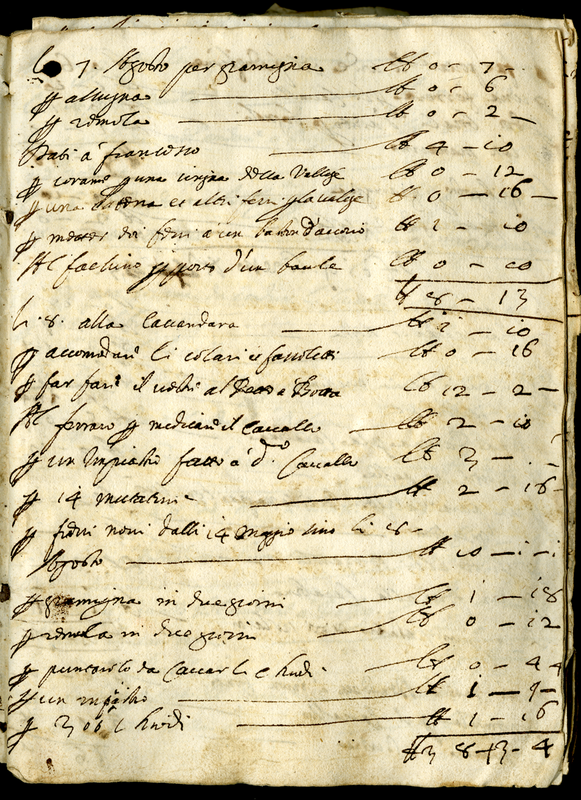 li 7 Agosto per gramigna lb 0 - 7
p alugna lb 0 - 6
p remola lb 0 - 2 -
Dati á francesco lb 4 - 10
p corame p una cigna della Vallige lb 0 - 12
p una catena et altri ferri p la valige lb 0 - 16 -
p metter doi ferri á un baston d'acorio lb 1 - 10
Al fachino p porto d'un baule lb 0 - 10
lb 8 - 13
li 8. alla lavandara lb 2 - 10
p accomodare li colari e fasoletti lb 0 - 16
p far fare il al lb 12 - 2 -
Al ferraro p medicare il cavallo lb 2 - 10
p un Impiastro fatto á do Cavallo lb 3 -
p 14 lb 2 - 16 -
p ferri novi dalli 14 Maggio sino li 8 -
Agosto lb 10 - 1 - 1
p gramigna in due giorni lb 1 - 18
p remola in due giorni lb 0 - 12
p da Cavar li Chiodi lb 0 - 4 4
p un impiastro lb 1 - 9 -
p Chiodi lb 1 - 16
lb 3 8 - 13 - 4